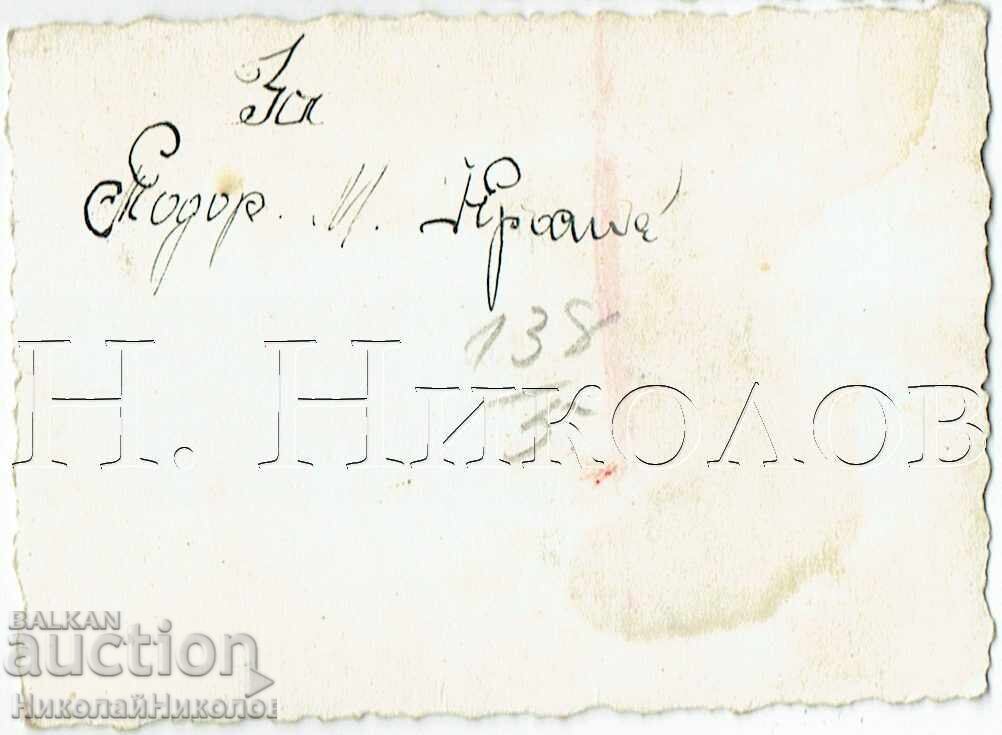 За
Тодор. М.
138
3
Н. НИКОЛОВ
BALKAN
auction
НиколайНиколов